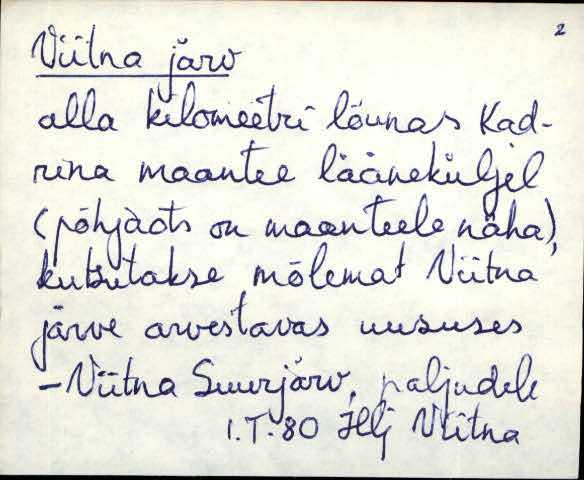 2
Viitna järv
alla kilomeetri lõunas Kad-
rina maantee lääneküljel
(põhjaots on maanteele näha),
kutsutakse mõlemat Viitna
järve arvestavas uususes
- Viitna Suurjärv, paljudele
1.T.80 Hlj Viitna